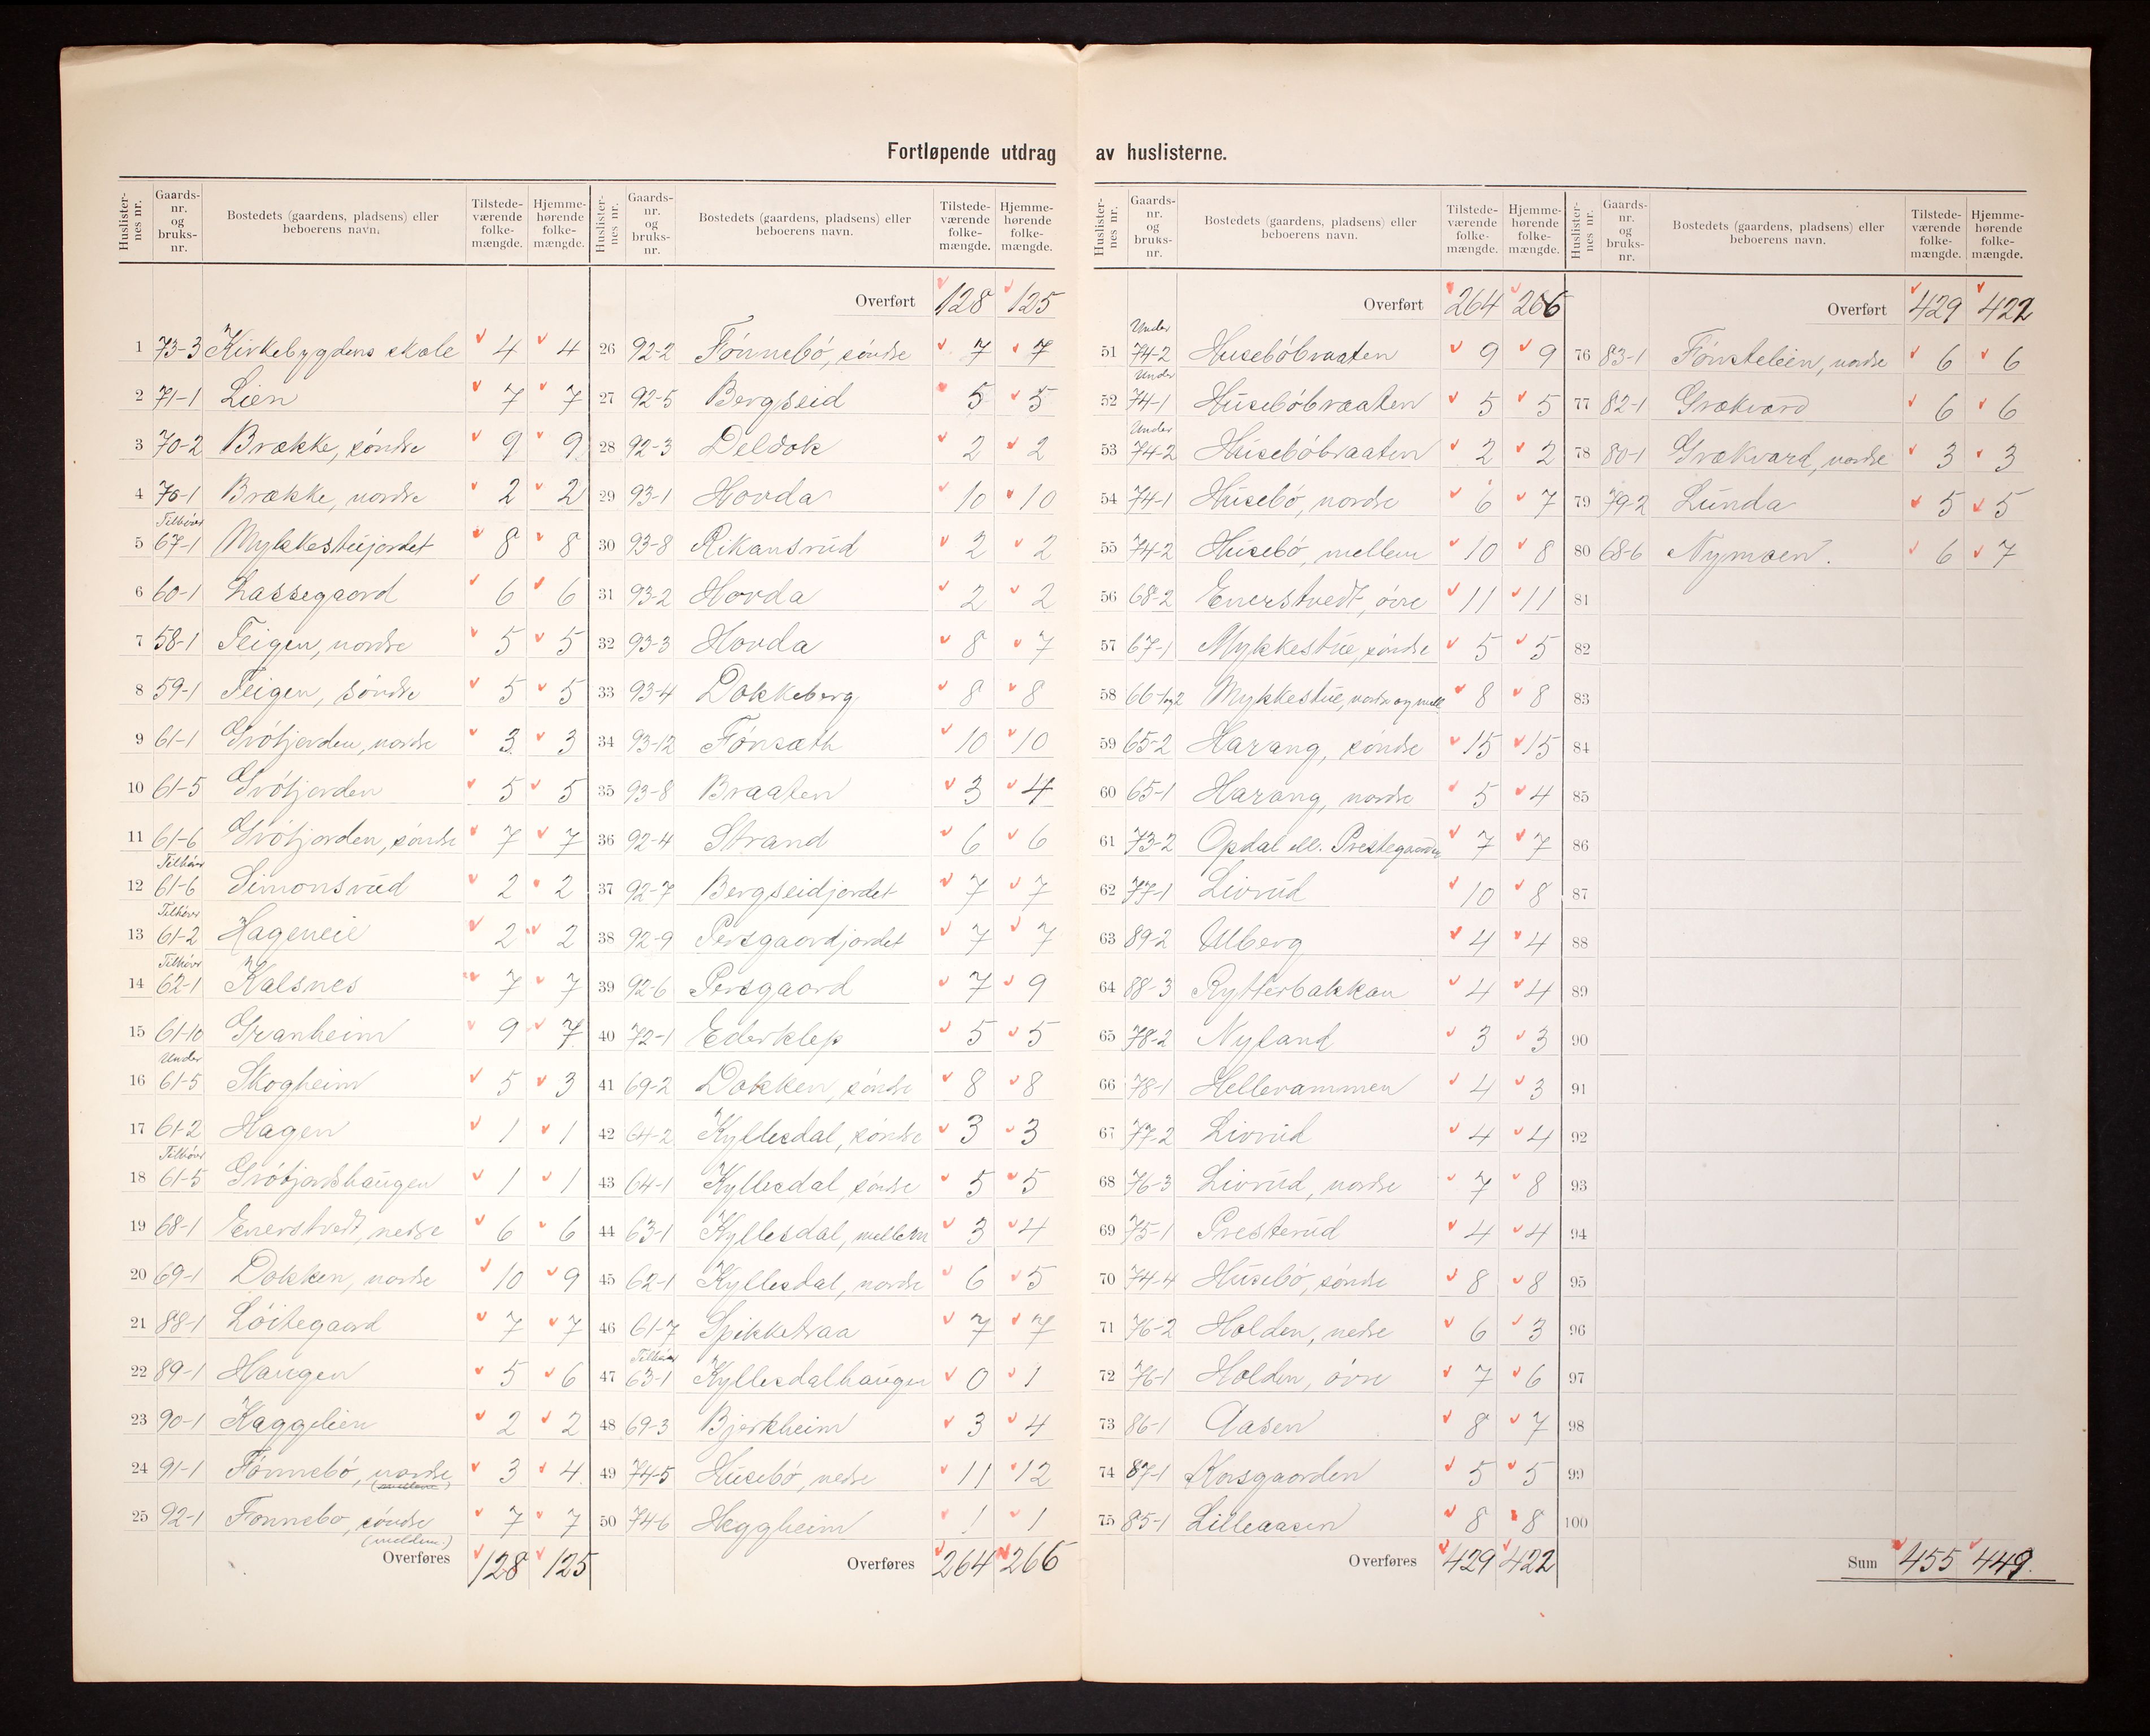 Fortløpende utdrag av huslisterne.
Huslister-nes nr. Gaards-nr. og bruks-nr. Bostedets (gaardens, pladsens) eller beboerens navn. Tilstede-værende folke-mængde. Hjemme-hørende folke-mængde.
1 73-3 Kirkebygdens skole 4 4
2 71-1 Lien 7 7
3 70-2 Brække, söndre 9 9
4 70-1 Brække, nordre 2 2
5 Tilhörer 67-1 Mykkestuejordet 8 8
6 60-1 Lassegaard 6 6
7 58-1 Teigen, nordre 5 5
8 59-1 Teigen, söndre 5 5
9 61-1 Grötjorden, nordre 3 3
10 61-5 Grötjorden 5 5
11 61-6 Grötjorden, söndre 7 7
12 Tilhörer 61-6 Simonsrud 2 2
13 Tilhörer 61-2 Hageneie 2 2
14 Tilhörer 62-1 Kalsnes 7 7
15 61-10 Granheim 9 7
16 Under 61-5 Skogheim 5 3
17 61-2 Hagen 1 1
18 Tilhörer 61-5 Grötjordshaugen 1 1
19 68-1 Enerstvedt, nedre 6 6
20 69-1 Dokken, nordre 10 9
21 88-1 Löitegaard 7 7
22 89-1 Haugen 5 6
23 90-1 Kaggelien 2 2
24 91-1 Fönnebö, nordre 3 4
(mellem)
25 92-1 Fönnebö, söndre 7 7
(mellem.)
Overføres 128 125
Huslister-nes nr. Gaards-nr. og bruks-nr. Bostedets (gaardens, pladsens) eller beboerens navn. Tilstede-værende folke-mængde. Hjemme-hørende folke-mængde.
Overført 128 125
26 92-2 Fönnebö, söndre 7 7
27 92-5 Bergseid 5 5
28 92-3 Deldok 2 2
29 93-1 Hovda 10 10
30 93-8 Rikansrud 2 2
31 93-2 Hovda 2 2
32 93-3 Hovda 8 7
33 93-4 Dokkeberg 8 8
34 93-12 Fönsæth 10 10
35 93-8 Braaten 3 4
36 92-4 Strand 6 6
37 92-7 Bergseidjordet 7 7
38 92-9 Persgaardjordet 7 7
39 92-6 Persgaard 7 9
40 72-1 Ederklep 5 5
41 69-2 Dokken, söndre 8 8
42 64-2 Kyllesdal, söndre 3 3
43 64-1 Kyllesdal, söndre 5 5
44 63-1 Kyllesdal, mellem 3 4
45 62-1 Kyllesdal, nordre 6 5
46 61-7 Spikketraa 7 7
47 Tilhörer 63-1 Kyllesdalhaugen 0 1
48 69-3 Bjerkheim 3 4
49 74-5 Husebö, nedre 11 12
50 74-6 Heggheim 1 1
Overføres 264 266
Huslister-nes nr. Gaards-nr. og bruks-nr. Bostedets (gaardens, pladsens) eller beboerens navn. Tilstede-værende folke-mængde. Hjemme-hørende folke-mængde.
Overført 264 266
51 Under 74-2 Huseböbraaten 9 9
52 Under 74-1 Huseböbraaten 5 5
53 Under 74-2 Huseböbraaten 2 2
54 74-1 Husebö, nordre 6 7
55 74-2 Husebö, mellem 10 8
56 68-2 Enerstvedt, övre 11 11
57 67-1 Mykkestue, söndre 5 5
58 66-1og2 Mykkestue, nordre og mell. 8 8
59 65-2 Harang, söndre 15 15
60 65-1 Harang, nordre 5 4
61 73-2 Opdal ell. Prestegaarden 7 7
62 77-1 Livrud 10 8
63 89-2 Ulberg 4 4
64 88-3 Rytterbakkan 4 4
65 78-2 Nyland 3 3
66 78-1 Hellevammen 4 3
67 77-2 Livrud 4 4
68 76-3 Livrud, nordre 7 8
69 75-1 Presterud 4 4
70 74-4 Husebö, söndre 8 8
71 76-2 Holden, nedre 6 3
72 76-1 Holden, övre 7 6
73 86-1 Aasen 8 7
74 87-1 Korsgaarden 5 5
75 85-1 Lilleaasen 8 8
Overføres 429 422
Huslister-nes nr. Gaards-nr. og bruks-nr. Bostedets (gaardens, pladsens) eller beboerens navn. Tilstede-værende folke-mængde. Hjemme-hørende folke-mængde.
Overført 429 422
76 83-1 Fönsteleien, nordre 6 6
77 82-1 Grækvard 6 6
78 80-1 Grækvard, nordre 3 3
79 79-2 Lunda 5 5
80 68-6 Nymoen. 6 7
81
82
83
84
85
86
87
88
89
90
91
92
93
94
95
96
97
98
99
100
Sum 455 449.